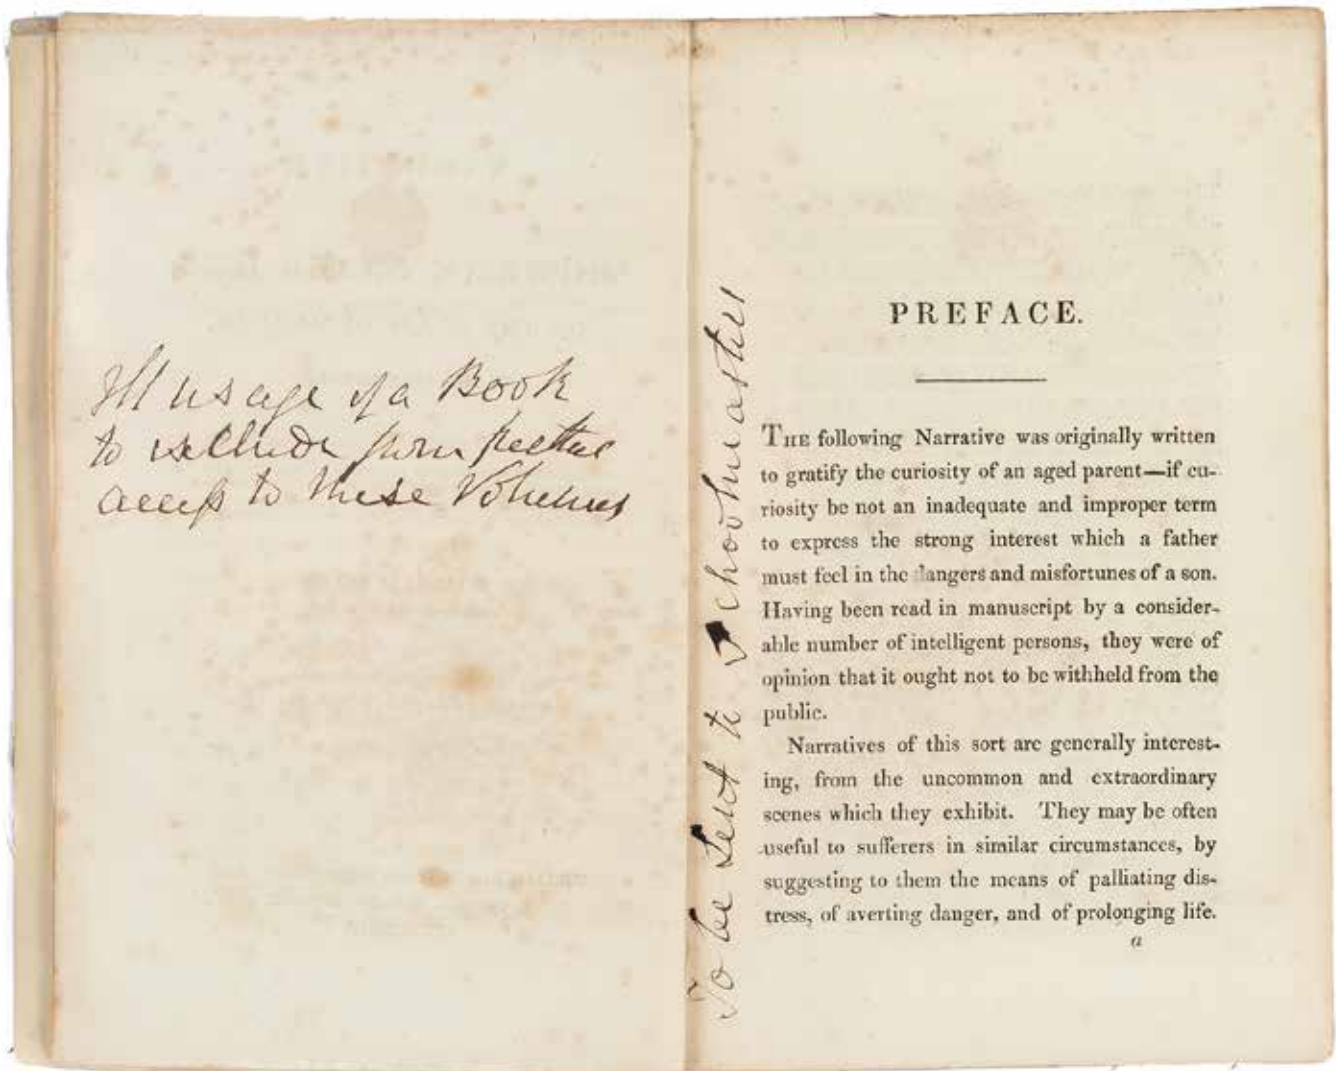 Ill usage of a Book
to exclude from further
access to these Volumes
To be Sent to Schoolmaster
PREFACE.
THE following Narrative was originally written
to gratify the curiosity of an aged parent—if cu-
riosity be not an inadequate and improper term
to express the strong interest which a father
must feel in the dangers and misfortunes of a son.
Having been read in manuscript by a consider-
able number of intelligent persons, they were of
opinion that it ought not to be withheld from the
public.
Narratives of this sort are generally interest-
ing, from the uncommon and extraordinary
scenes which they exhibit. They may be often
useful to sufferers in similar circumstances, by
suggesting to them the means of palliating dis-
tress, of averting danger, and of prolonging life.
a